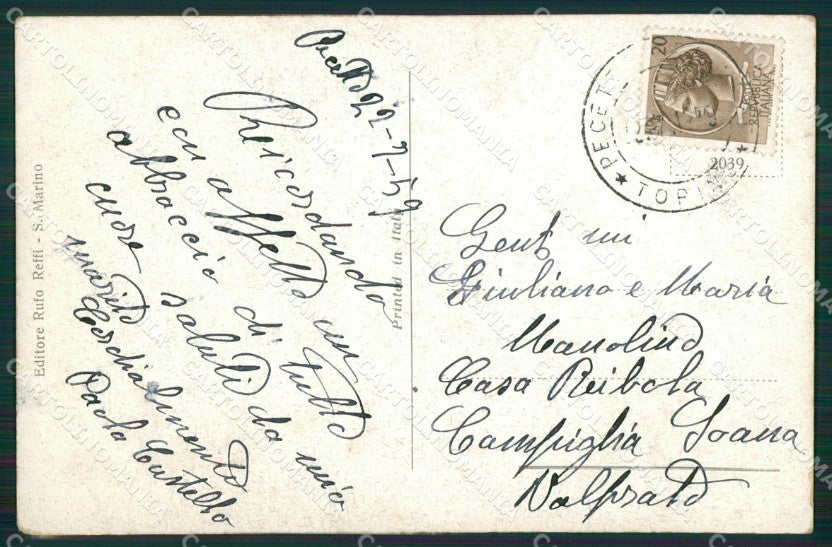 Pecetto 22-7-59
Ricordando
con affetto un
abbraccio di tutto
cuore saluti da mio
marito
Cordialmente
Paola Castello
Editore Rufo Reffi - S. Marino
Printed in Italy
PECETT
TORIN
20
REPUBBLICA
ITALIANA
2039
Gent mi
Giuliano e Maria
Manolino
Casa Reibola
Campiglia Soana
Valprato
CARTOLINOMANIA